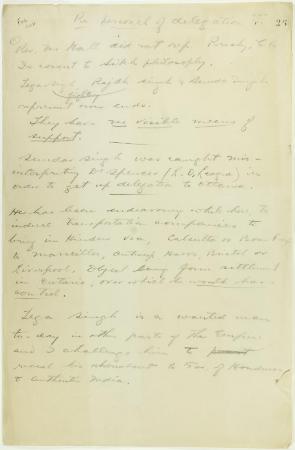 Re personnel of delegation
25
Rev. Mr Hall did not rep.
Do convert to Sikh philosophy.
Teja Singh, Rajah Singh & Sundar Singh
represent own ends.
They have no visible means of
support.
Sundar Singh was caught mis-
interpreting Dr Spencer
order to get up delegation to Ottawa.
He has been endeavoring while here to
induce transportation companies to
bring in Hindus via, Calcutta or Bombay
to Marseilles, Antwerp Havre, Bristol or
Liverpool, Object being farm settlement
in Ontario, over which he would have
control.
Teja Singh is a wanted man
to-day in other parts of the Empire
and I challenge him to
reveal his whereabouts to Gov. of Honduras
& authorities India.